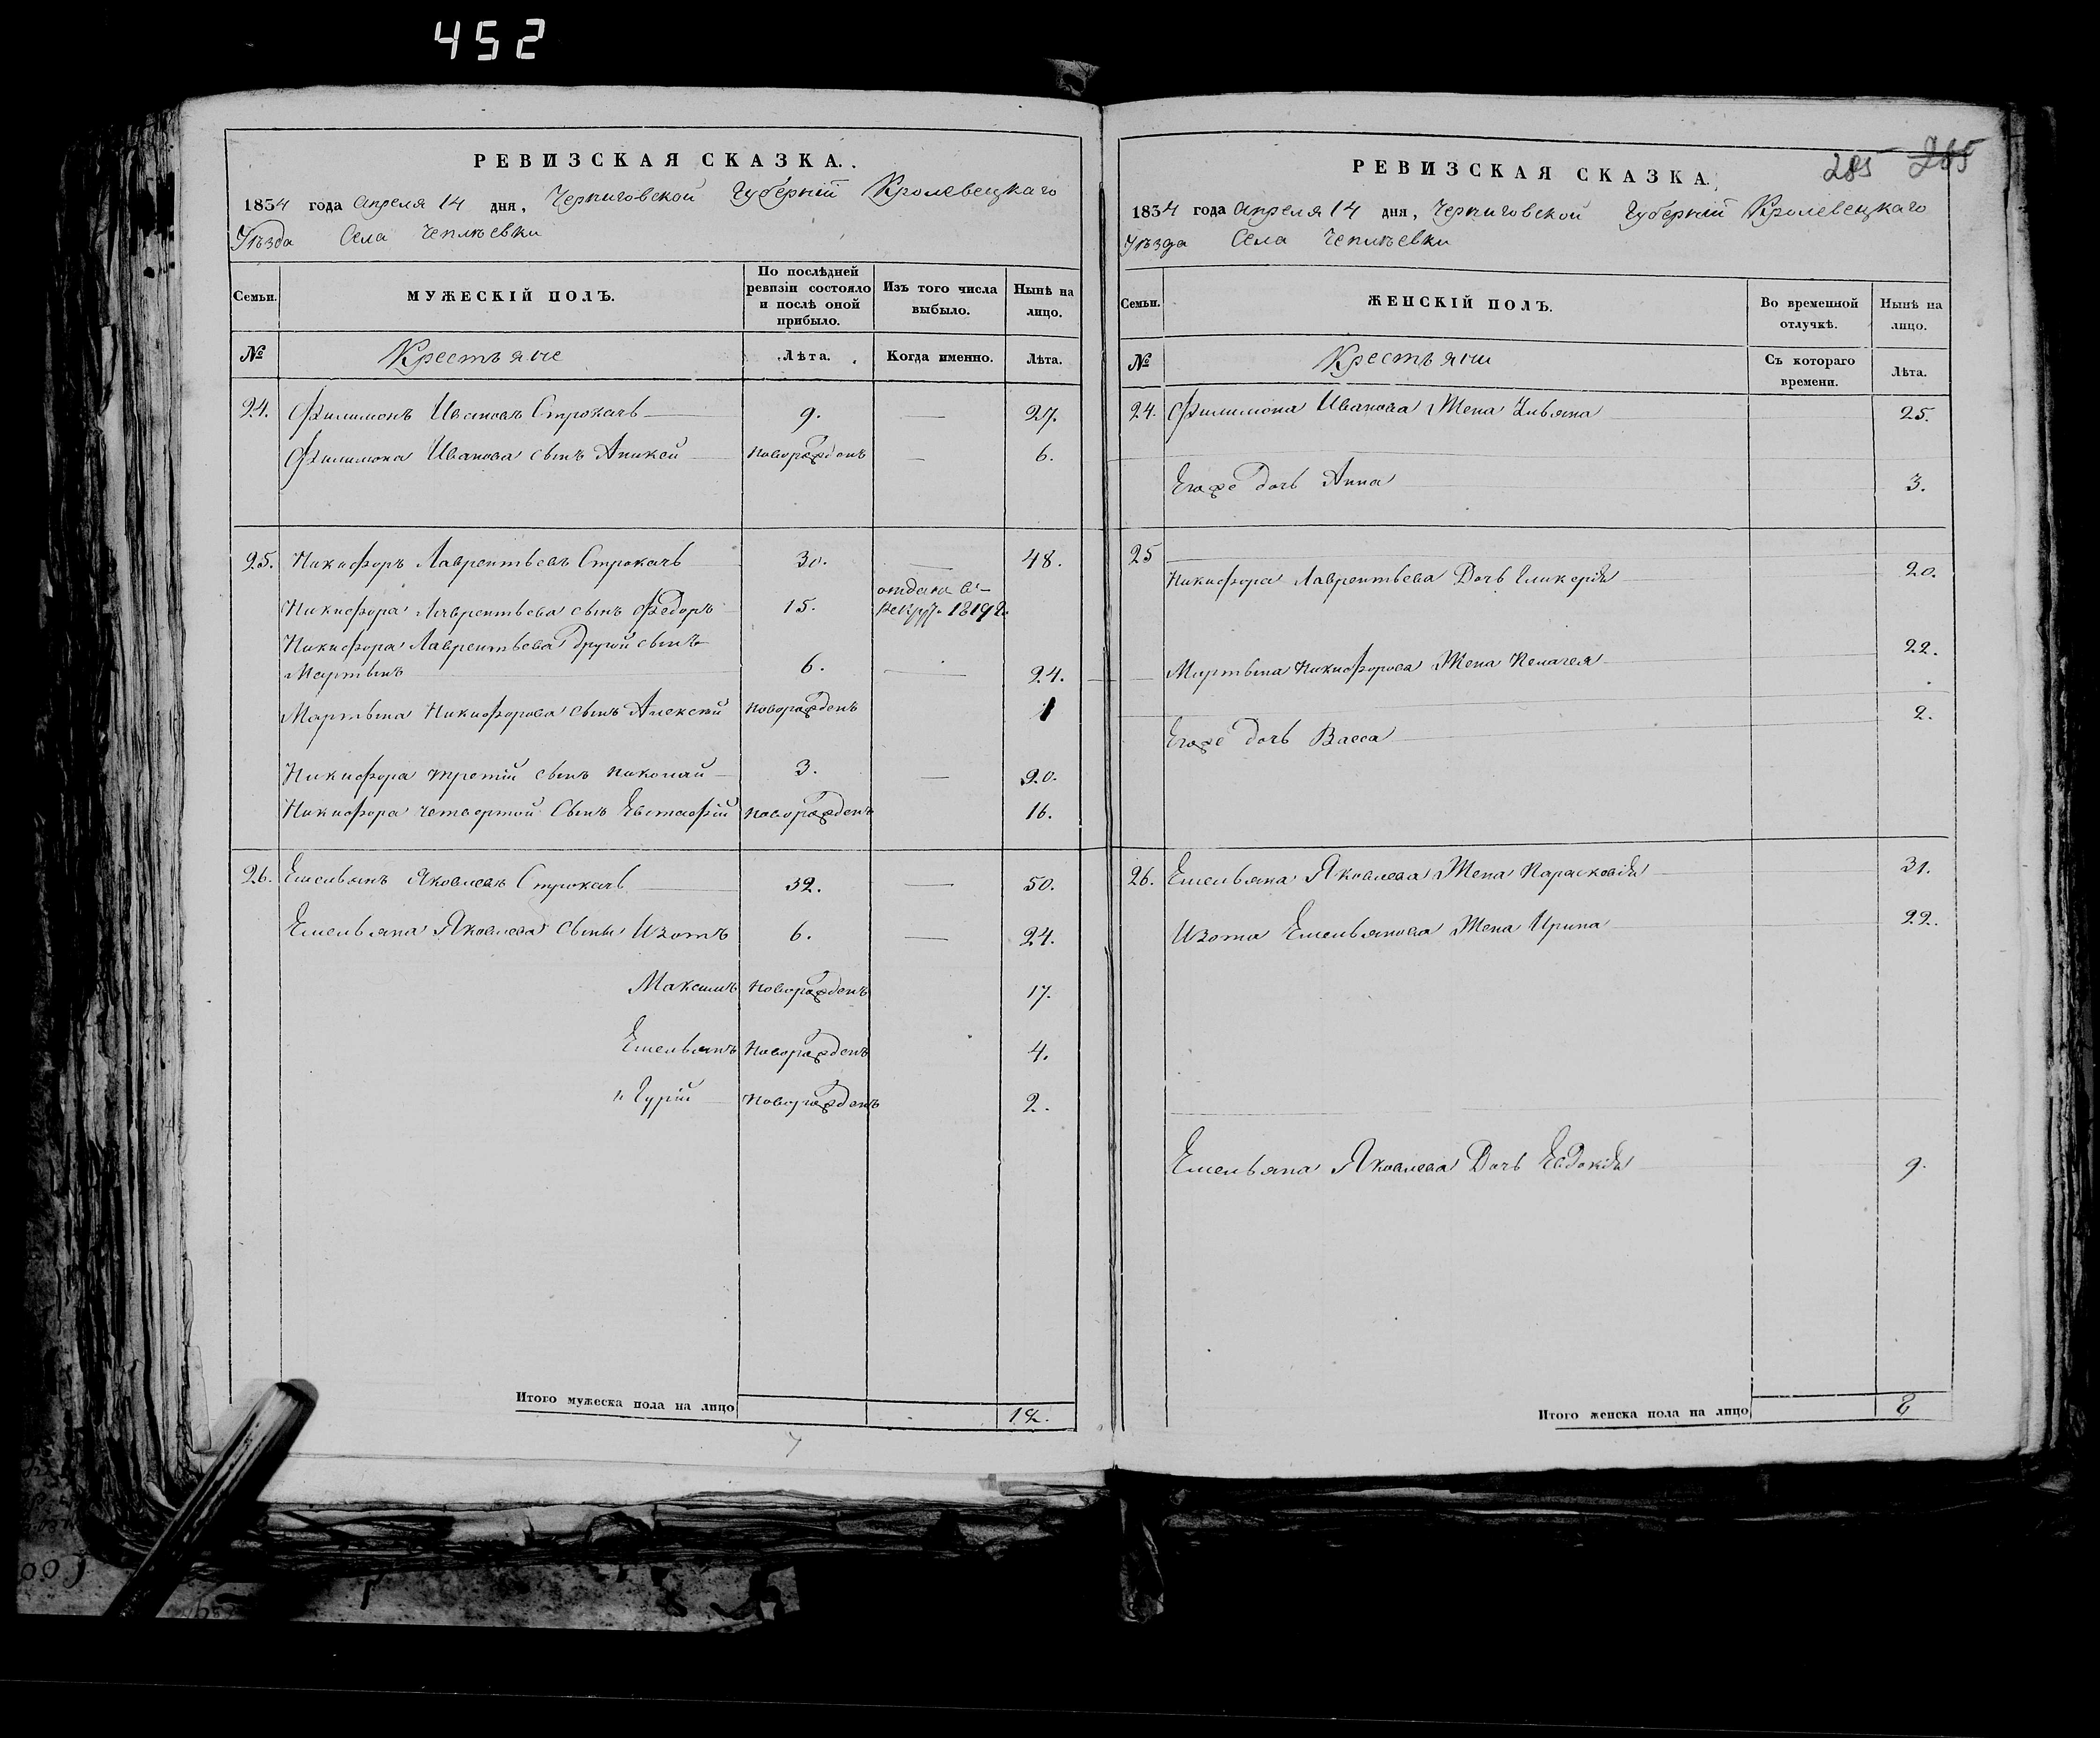 452
РЕВИЗСКАЯ СКАЗКА.
1834 года Апреля 14 дня, Черниговской Губерніи Кролевецкаго
Уѣзда Села Чеплѣевки
Семьи.
МУЖЕСКІЙ ПОЛЪ.
По послѣдней ревизіи состояло и послѣ оной прибыло.
Изъ того числа выбыло.
Нынѣ на лицо.
№ Крестьяне Лѣта. Когда именно. Лѣта.
24. Филимонъ Ивановъ Строкачь 9. — 27.
Филимона Иванова сынъ Аникей новорожденъ — 6.
25. Никифоръ Лаврентьевъ Строкачь 30. — 48.
Никифора Лаврентьева сынъ Федоръ 15. отданъ въ рекрут. 1819 г.
Никифора Лаврентьева другой сынъ
Мартынъ 6. — 24.
Мартына Никифорова сынъ Алексѣй новорожденъ 1
Никифора третій сынъ Николай 3. — 20.
Никифора четвертой сынъ Евстафій новорожденъ 16.
26. Емельянъ Яковлевъ Строкачь 32. — 50.
Емельяна Яковлева сыны Изотъ 6. — 24.
Максимъ новорожденъ 17.
Емельянъ новорожденъ 4.
" Гурій новорожденъ 2.
Итого мужеска пола на лицо 12.
РЕВИЗСКАЯ СКАЗКА.
285 285
1834 года Апреля 14 дня, Черниговской Губерніи Кролевецкаго
Уѣзда Села Чеплѣевки
Семьи.
ЖЕНСКІЙ ПОЛЪ.
Во временной отлучкѣ.
Нынѣ на лицо.
№ Крестьяни Съ котораго времени. Лѣта.
24. Филимона Иванова Жена Ульяна 25.
Егоже дочь Анна 3.
25
Никифора Лаврентьева Дочь Гликерія 20.
Мартына Никифорова Жена Пелагея 22.
Егоже дочь Васса 2.
26. Емельяна Яковлева Жена Парасковія 31.
Изота Емельянова Жена Ирина 22.
Емельяна Яковлева Дочь Евдокія 9.
Итого женска пола на лицо 8